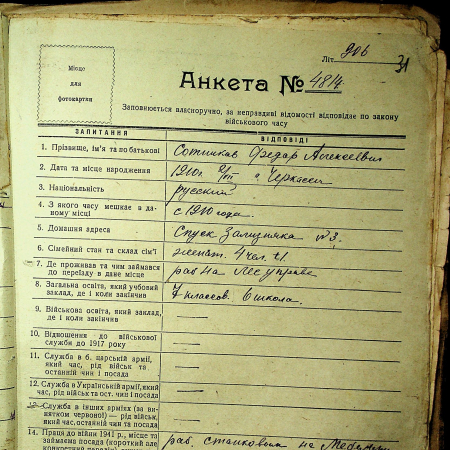 Літ. 906
31
Місце
для
фотокартки
Анкета № 4814
Заповнюється власноручно, за неправдиві відомості відповідає по закону
військового часу
ЗАПИТАННЯ
ВІДПОВІДІ
1. Прізвище, ім'я та по батькові
Сотников Федор Алексеевич
2. Дата та місце народження
1910г. г. Черкассы
3. Національність
русский
4. З якого часу мешкає в даному місці
с 1910 года.
5. Домашня адреса
Спуск Зализняка №3.
6. Сімейний стан та склад сім'ї
женат. 4 чел.
7. Де проживав та чим займався
до переїзду в дане місце
раб на
8. Загальна освіта, який учбовий
заклад, де і коли закінчив
7 классов. школа.
9. Військова освіта, який заклад,
де і коли закінчив
—
10. Відношення до військової
служби до 1917 року
—
11. Служба в б. царській армії,
який час, рід військ та
останній чин і посада
—
12. Служба в Українській армії, який
час, рід військ та ост. чин і посада
—
13. Служба в інших арміях (за винятком червоної) — рід військ,
який час, останній чин та посада
—
14. Праця до війни 1941 р., місце та
займаєма посада (короткий але
раб. на